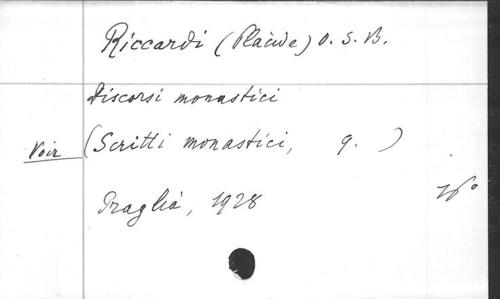 Riccardi (Placide) O. S. B.
Discorsi monastici
Voir (Scritti monastici, 9. )
Praglia, 1928
16°